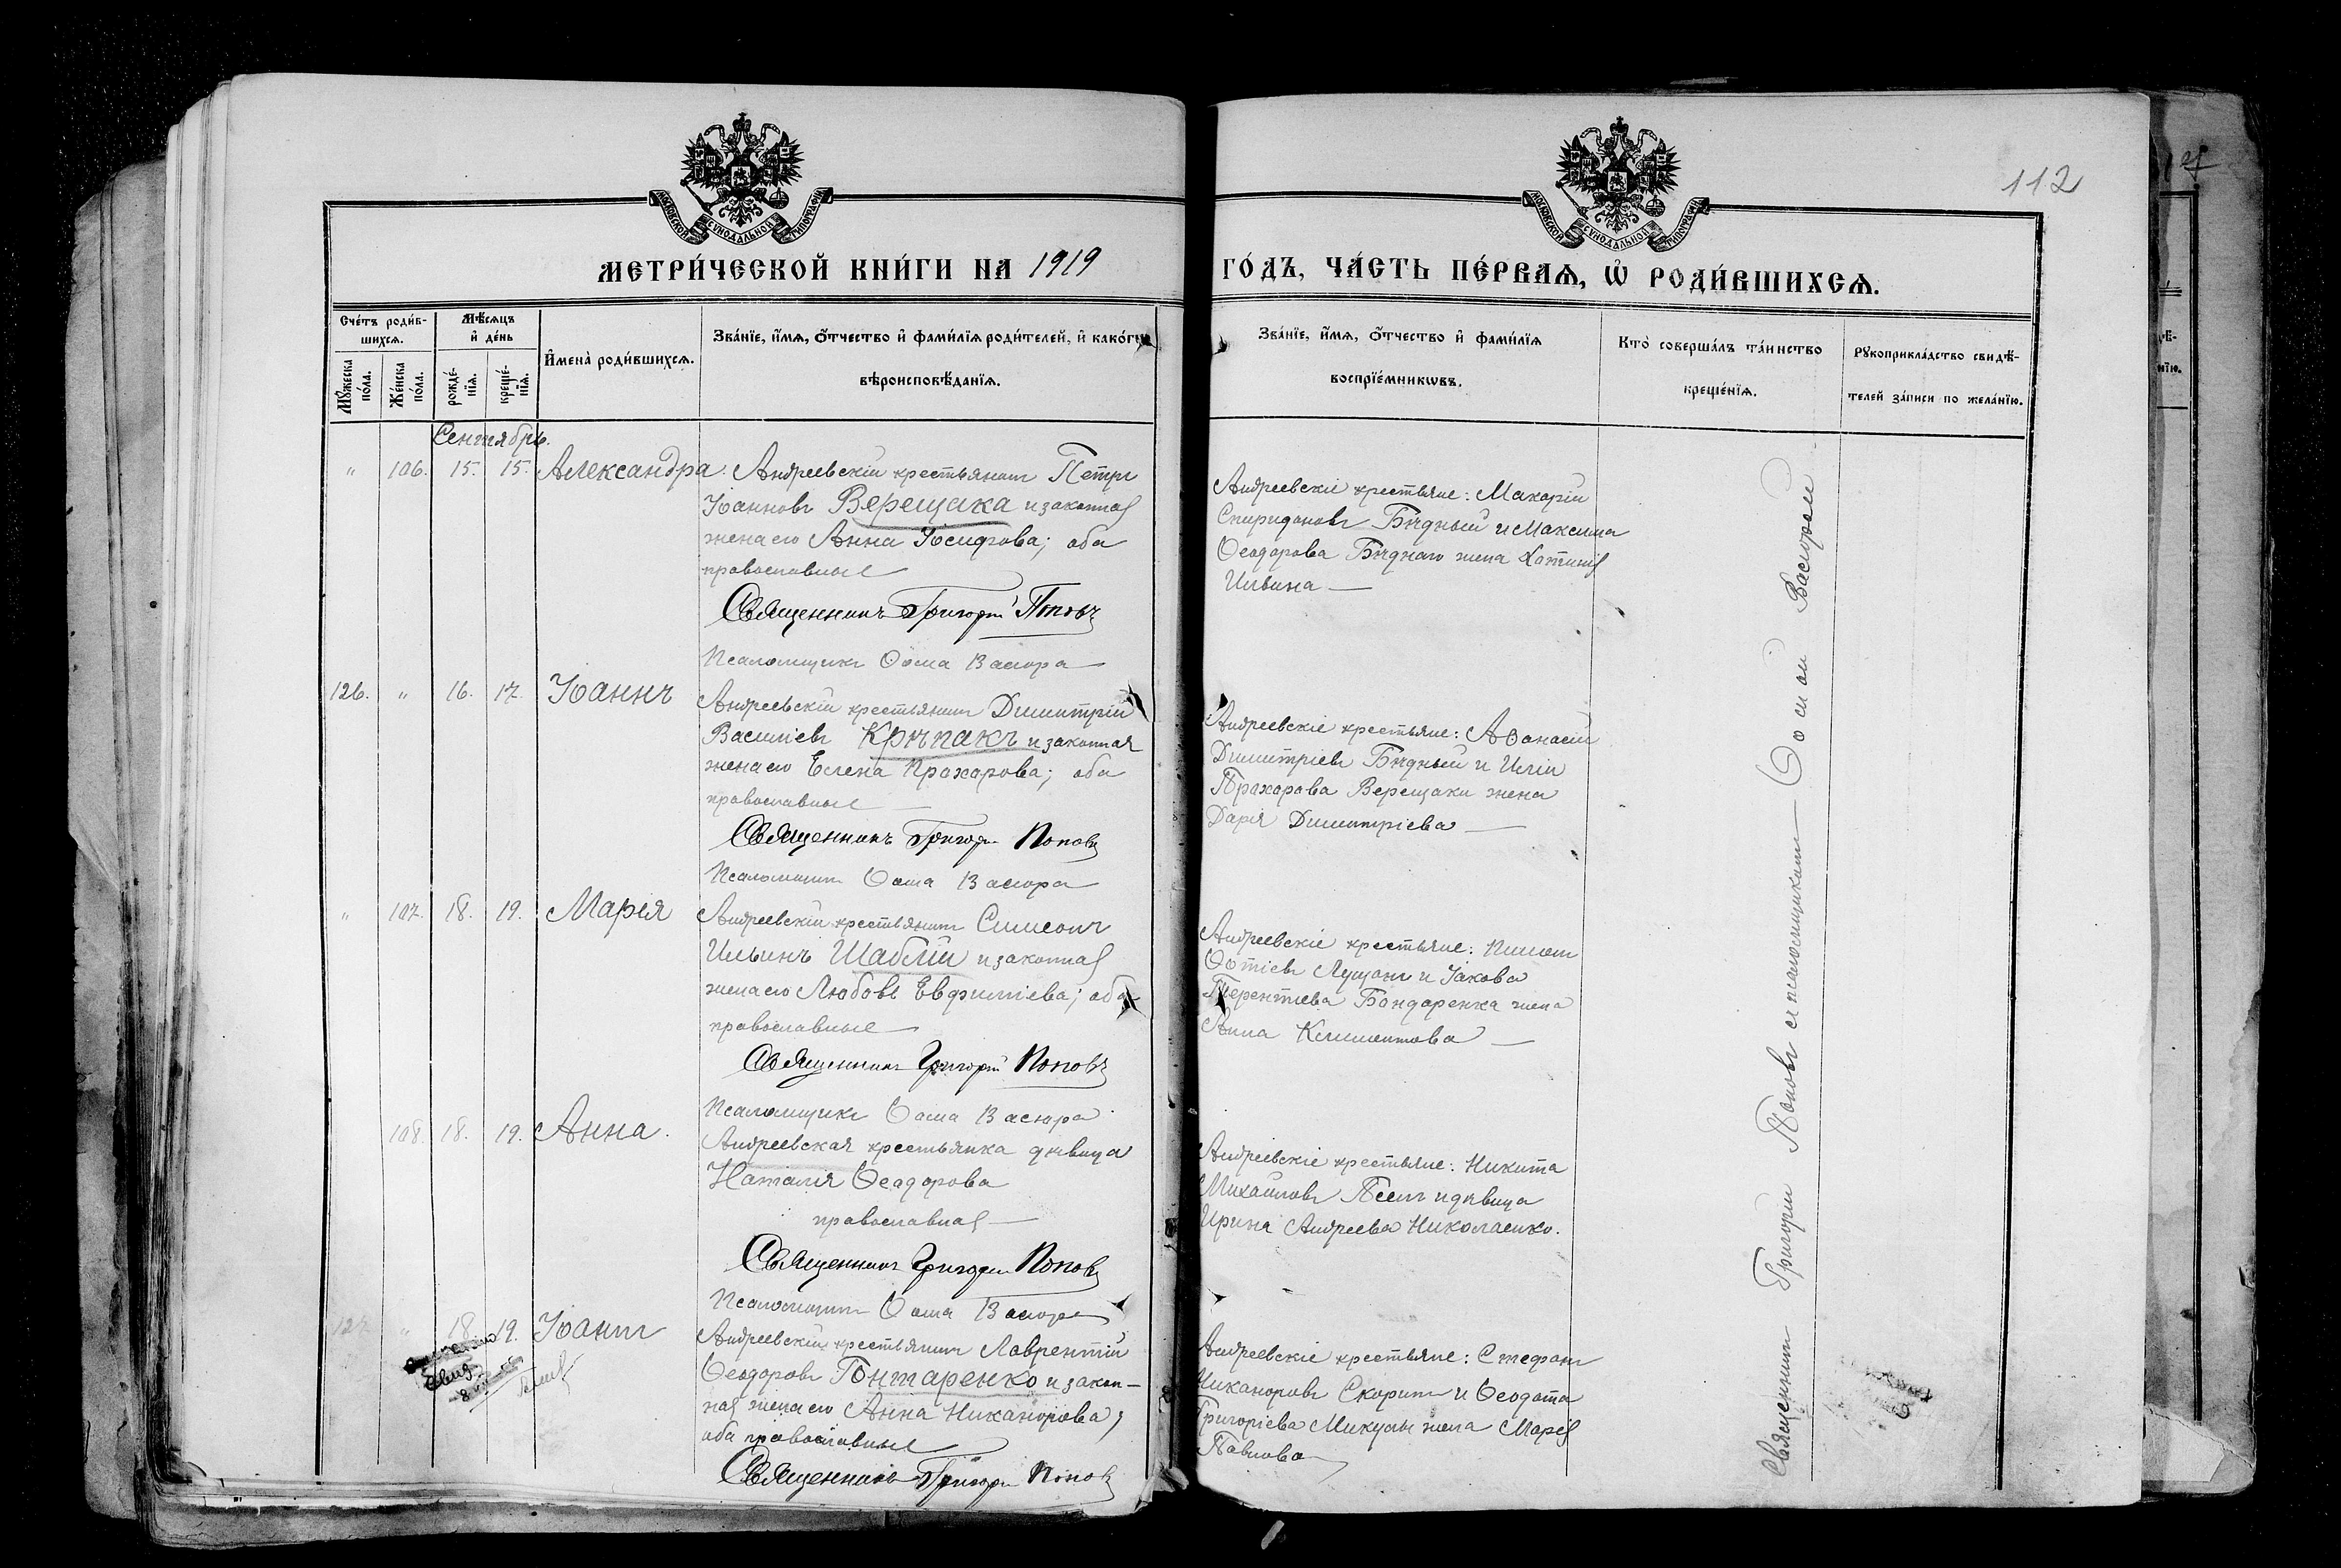 112
МОСКОВСКОЙ СѴНОДАЛЬНОЙ ТИПОГРАФІИ
МОСКОВСКОЙ СѴНОДАЛЬНОЙ ТИПОГРАФІИ
МЕТРИ́ЧЕСКОЙ КНИ́ГИ НА 1919
ГО́ДЪ, ЧА́СТЬ ПЕ́РВАѦ, Ѡ҆ РОДИ́ВШИХСѦ.
Сче́тъ роди́в-
шихсѧ.
Мꙋ́жеска по́ла.
Же́нска по́ла.
Мѣ́сѧцъ
и҆ де́нь
рожде́-
нїѧ.
креще́-
нїѧ.
И҆мена̀ роди́вшихсѧ.
Зва́нїе, и҆́мѧ, ѻ҆́тчество и҆ фами́лїѧ роди́телей, и҆ како́гѡ
вѣроисповѣ́данїѧ.
Зва́нїе, и҆́мѧ, ѻ҆́тчество и҆ фами́лїѧ
воспрїе́мникѡвъ.
Кто̀ соверша́лъ та́инство
креще́нїѧ.
Рꙋкоприкла́дство свидѣ́-
телей за́писи по жела́нїю.
Сентябрь.
" 106. 15. 15. Александра. Андреевскій крестьянинъ Петръ
Іоанновъ Верещака и законная
жена его Анна Іосифова; оба
православные
Священникъ Григорій Поповъ
Псаломщикъ Ѳома Васюра
Андреевскіе крестьяне: Макарій
Спиридоновъ Бѣдный и Максима
Ѳеодорова Бѣднаго жена Хотинія
Ильина —
126. " 16. 17. Іоаннъ
Андреевскій крестьянинъ Димитрій
Василіевъ Крѣпакъ и законная
жена его Елена Прохорова; оба
православные —
Священникъ Григорій Поповъ
Псаломщикъ Ѳома Васюра
Андреевскіе крестьяне: Аѳанасій
Димитріевъ Бѣдный и Иліи
Прохорова Верещаки жена
Дарія Димитріева —
" 107. 18. 19. Марія
Андреевскій крестьянинъ Симеонъ
Ильинъ Шаблій и законная
жена его Любовь Евфиміева; оба
православные —
Священникъ Григорій Поповъ
Псаломщикъ Ѳома Васюра
Андреевскіе крестьяне: Пимонъ
Фотіевъ Лущанъ и Іакова
Терентіева Бондаренка жена
Анна Климентова —
108. 18. 19. Анна.
Андреевская крестьянка дѣвица
Наталія Ѳеодорова
православная —
Священникъ Григорій Поповъ
Псаломщикъ Ѳома Васюра
Андреевскіе крестьяне: Никита
Михаиловъ Песлъ и дѣвица
Ирина Андреева Николаенко.
127 " 18. 19. Іоаннъ
Андреевскій крестьянинъ Лаврентій
Ѳеодоровъ Гонтаренко и закон-
ная жена его Анна Никанорова;
оба православные
Священникъ Григорій Поповъ
Андреевскіе крестьяне: Стефанъ
Никаноровъ Скоринъ и Ѳеодота
Григоріева Микулы жена Марія
Павлова
Священникъ Григорій Поповъ съ псаломщикомъ Ѳомой Васюрой